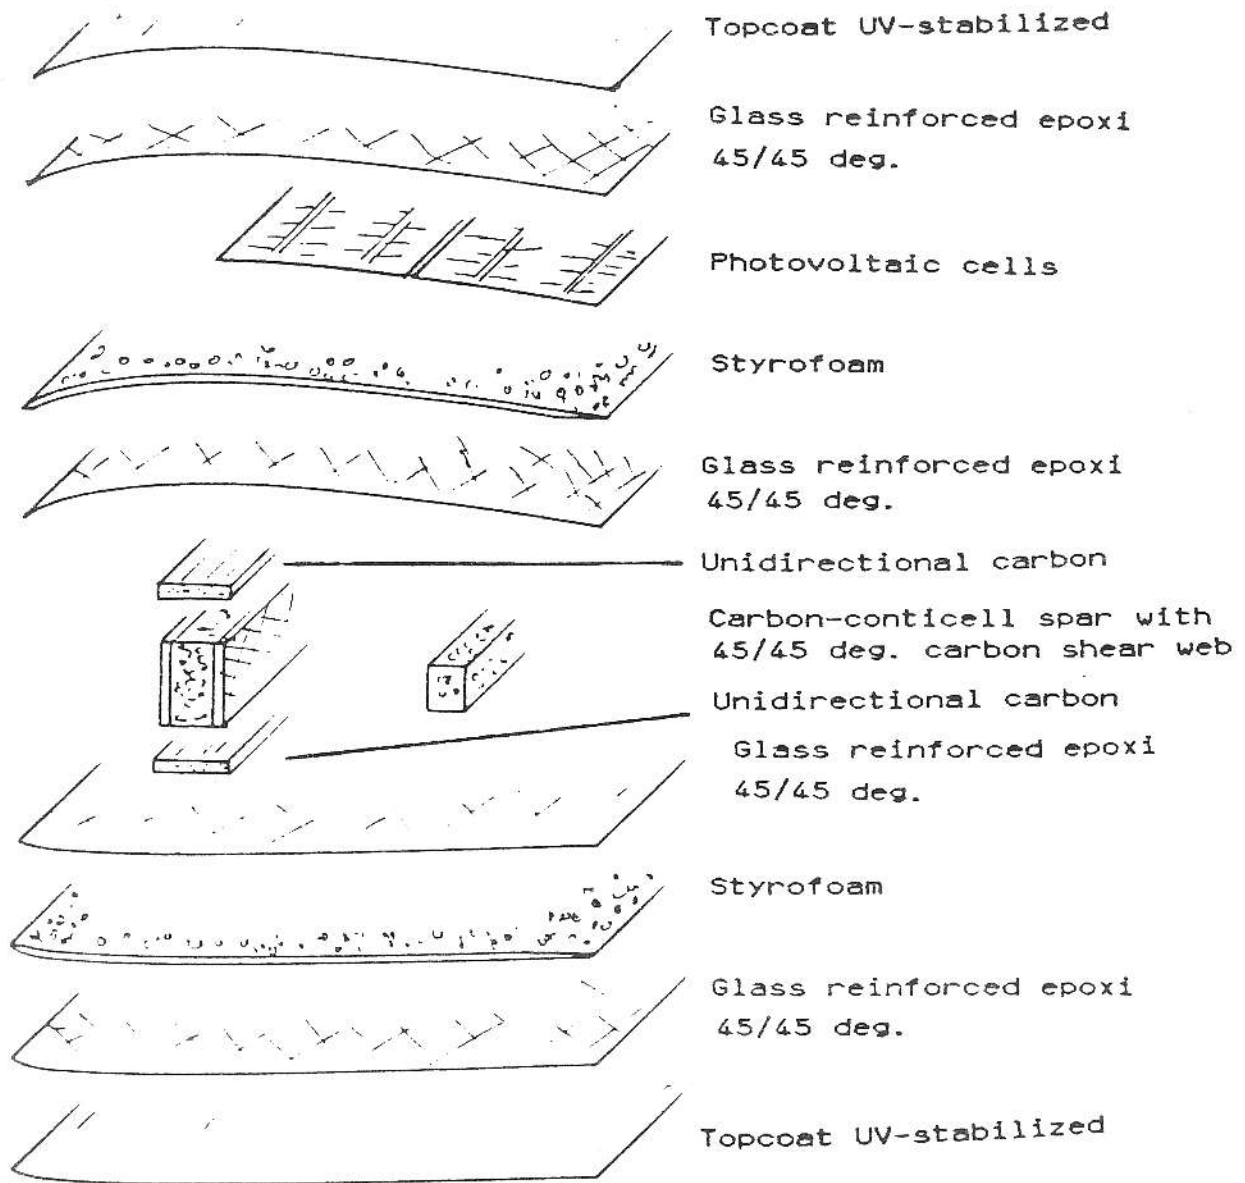 Topcoat UV-stabilized
Glass reinforced epoxi
45/45 deg.
Photovoltaic cells
Styrofoam
Glass reinforced epoxi
45/45 deg.
Unidirectional carbon
Carbon-conticell spar with
45/45 deg. carbon shear web
Unidirectional carbon
Glass reinforced epoxi
45/45 deg.
Styrofoam
Glass reinforced epoxi
45/45 deg.
Topcoat UV-stabilized